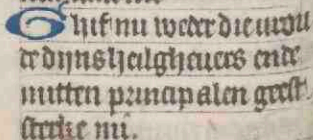 Ghif mi weder die vrou
de dijns heilgheuers ende
mitten principalen geest
sterke mi.